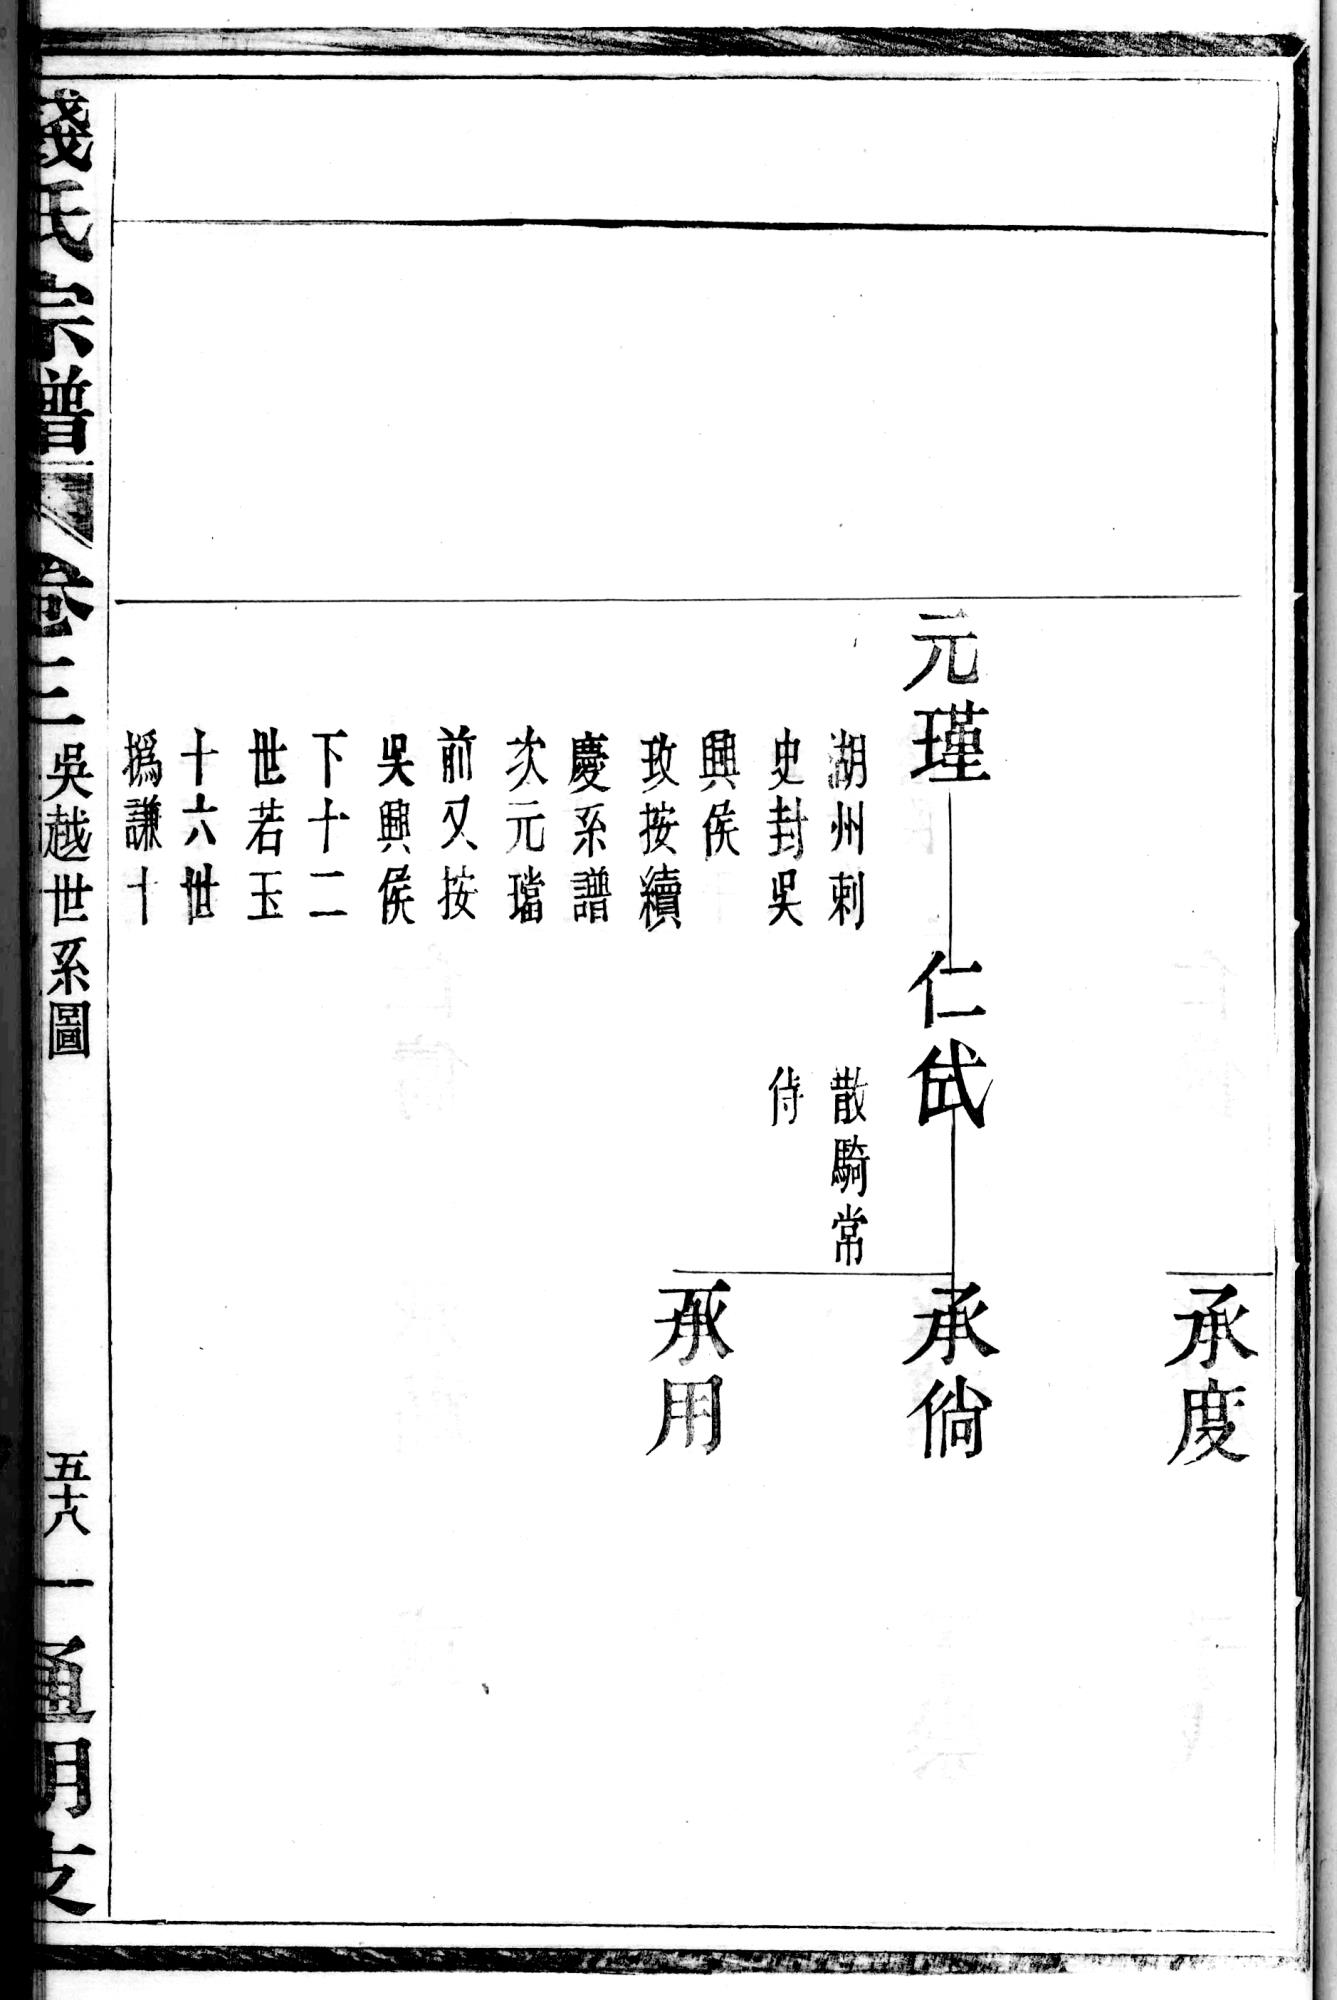 承度
元瑾
仁㒆
承徜
承用
湖州刺
史封吳
興侯
攷按續
慶系譜
次元璫
前又按
吳興侯
下十二
世若玉
十六世
撝謙十
散騎常
侍
錢氏宗譜 卷三 吳越世系圖 五十八 一 通明支